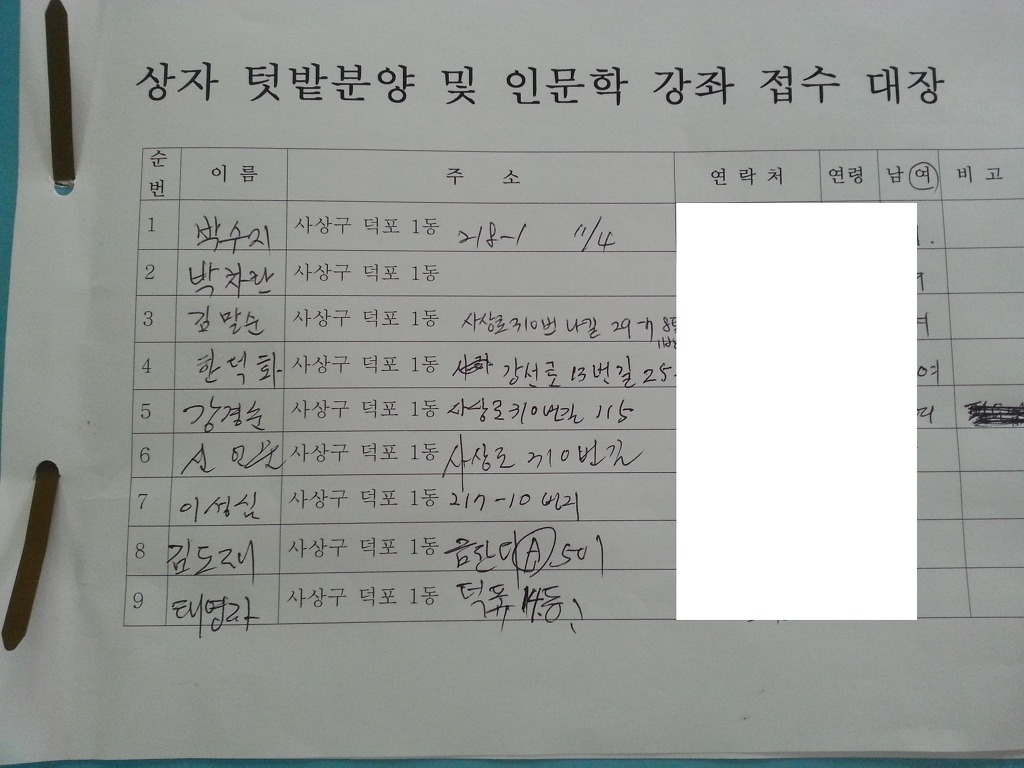 상자 텃밭분양 및 인문학 강좌 접수 대장
순번 이름 주소 연락처 연령 남여 비고
1 박수지 사상구 덕포 1동 218-1 11/4
2 박차란 사상구 덕포 1동
3 김말순 사상구 덕포 1동 사상로310번 나길 29-7
4 한덕화 사상구 덕포 1동 강선로 13번길 25- 여
5 강경순 사상구 덕포 1동 사상로310번길 115
6 사상구 덕포 1동 사상로 310번길
7 이성심 사상구 덕포 1동 217-10 번지
8 김도래 사상구 덕포 1동 A 501
9 태영자 사상구 덕포 1동